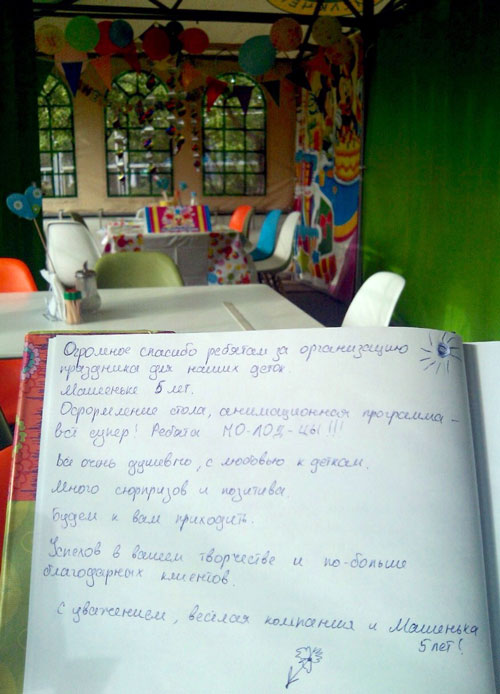 Огромное спасибо ребятам за организацию
праздника для наших деток.
Машеньке 5 лет.
Оформление стола, анимационная программа –
всё супер! Ребята МО-ЛОД-ЦЫ!!!
Всё очень душевно, с любовью к деткам.
Много сюрпризов и позитива.
Будем к вам приходить.
Успехов в вашем творчестве и по-больше
благодарных клиентов.
С уважением, весёлая компания и Машенька
5 лет!